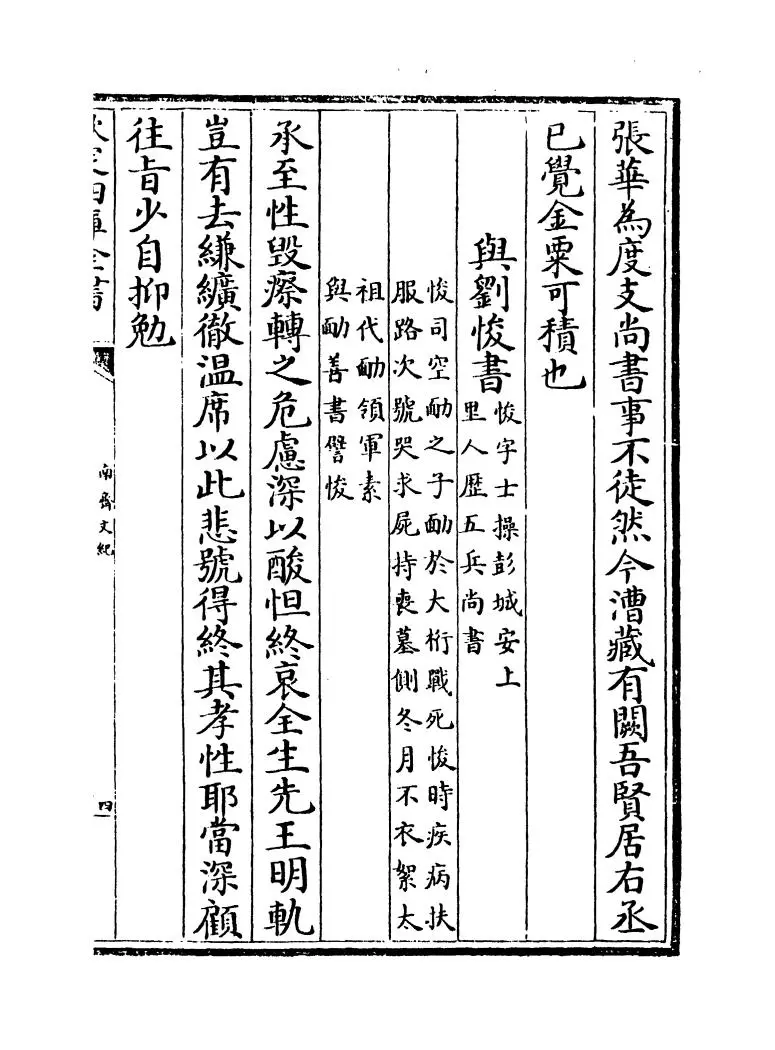 張華為度支尚書事不徒然今漕藏有闕吾賢居右丞
已覺金粟可積也
與劉悛書
悛字士操彭城安上
里人歴五兵尚書
悛司空勔之子勔於大桁戰死悛時疾病扶
服路次號哭求屍持喪墓側冬月不衣絮太
祖代勔領軍素
與勔善書譬悛
承至性毀瘵轉之危慮深以酸怛終哀全生先王明軌
豈有去縑纊徹温席以此悲號得終其孝性耶當深顧
往旨少自抑勉
欽定四庫全書
南齊文紀
四